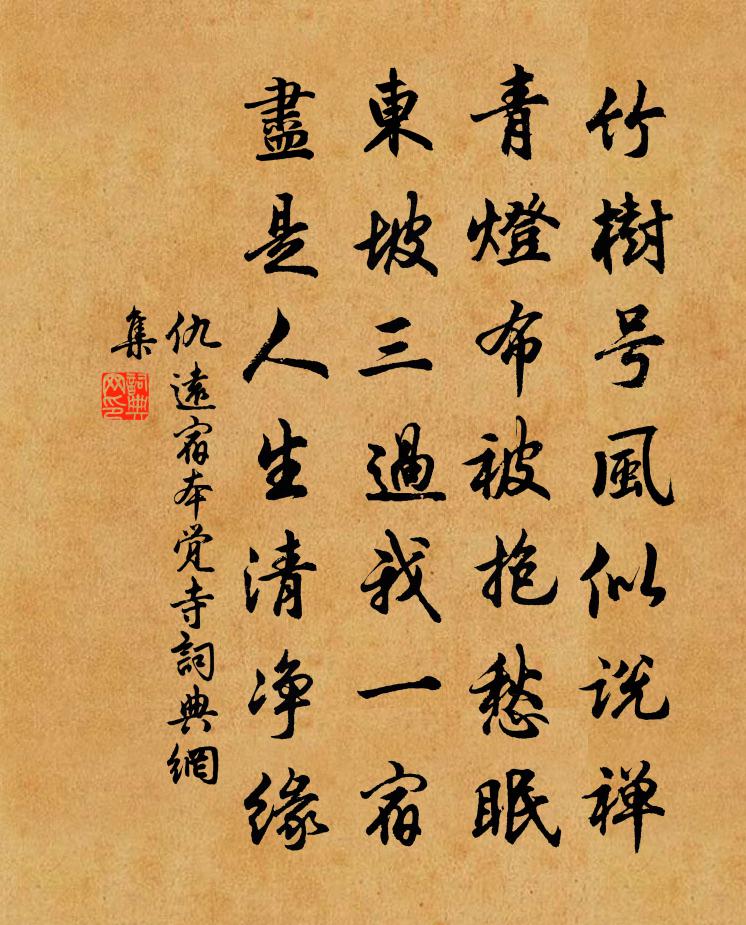 竹樹号風似说禅
青燈布被抱愁眠
東坡三過我一宿
盡是人生清净緣
仇遠宿本覚寺詞典網
集
詞典
网印